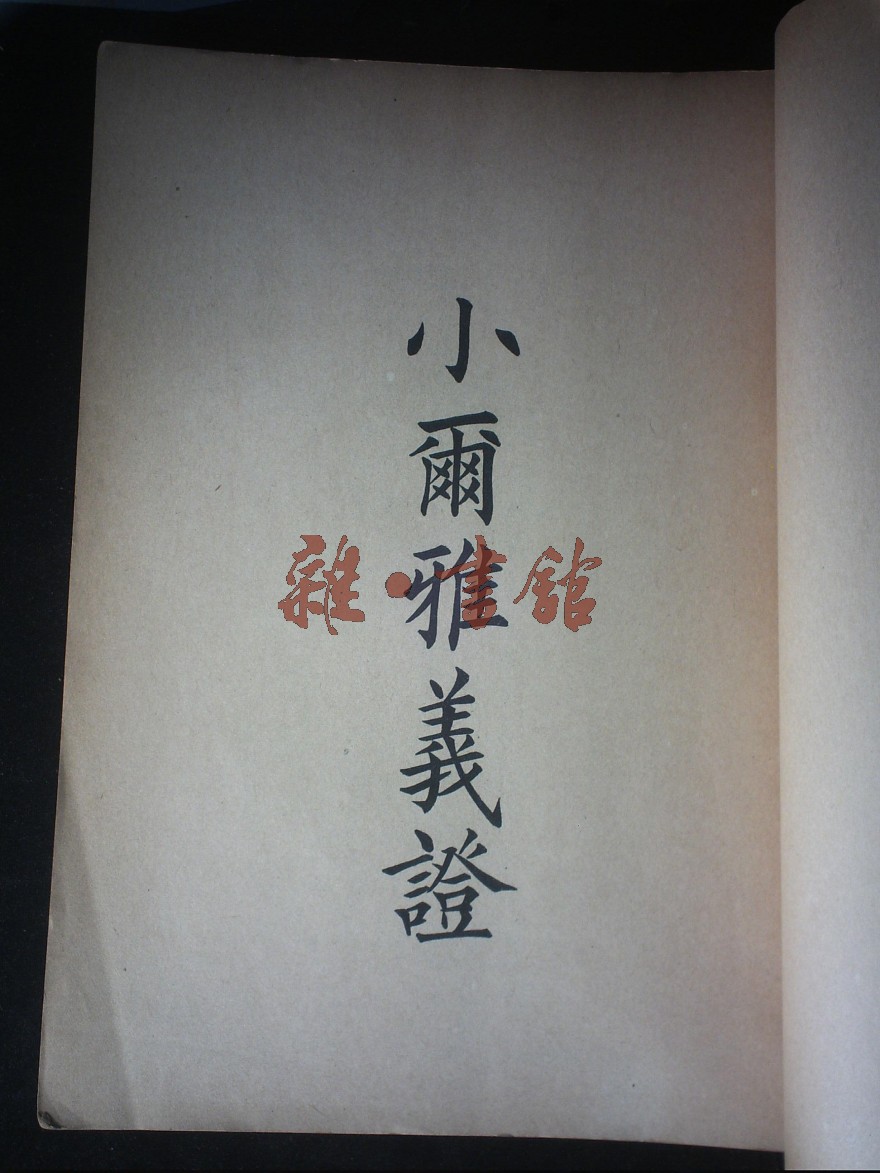 小爾雅義證
雜·書館